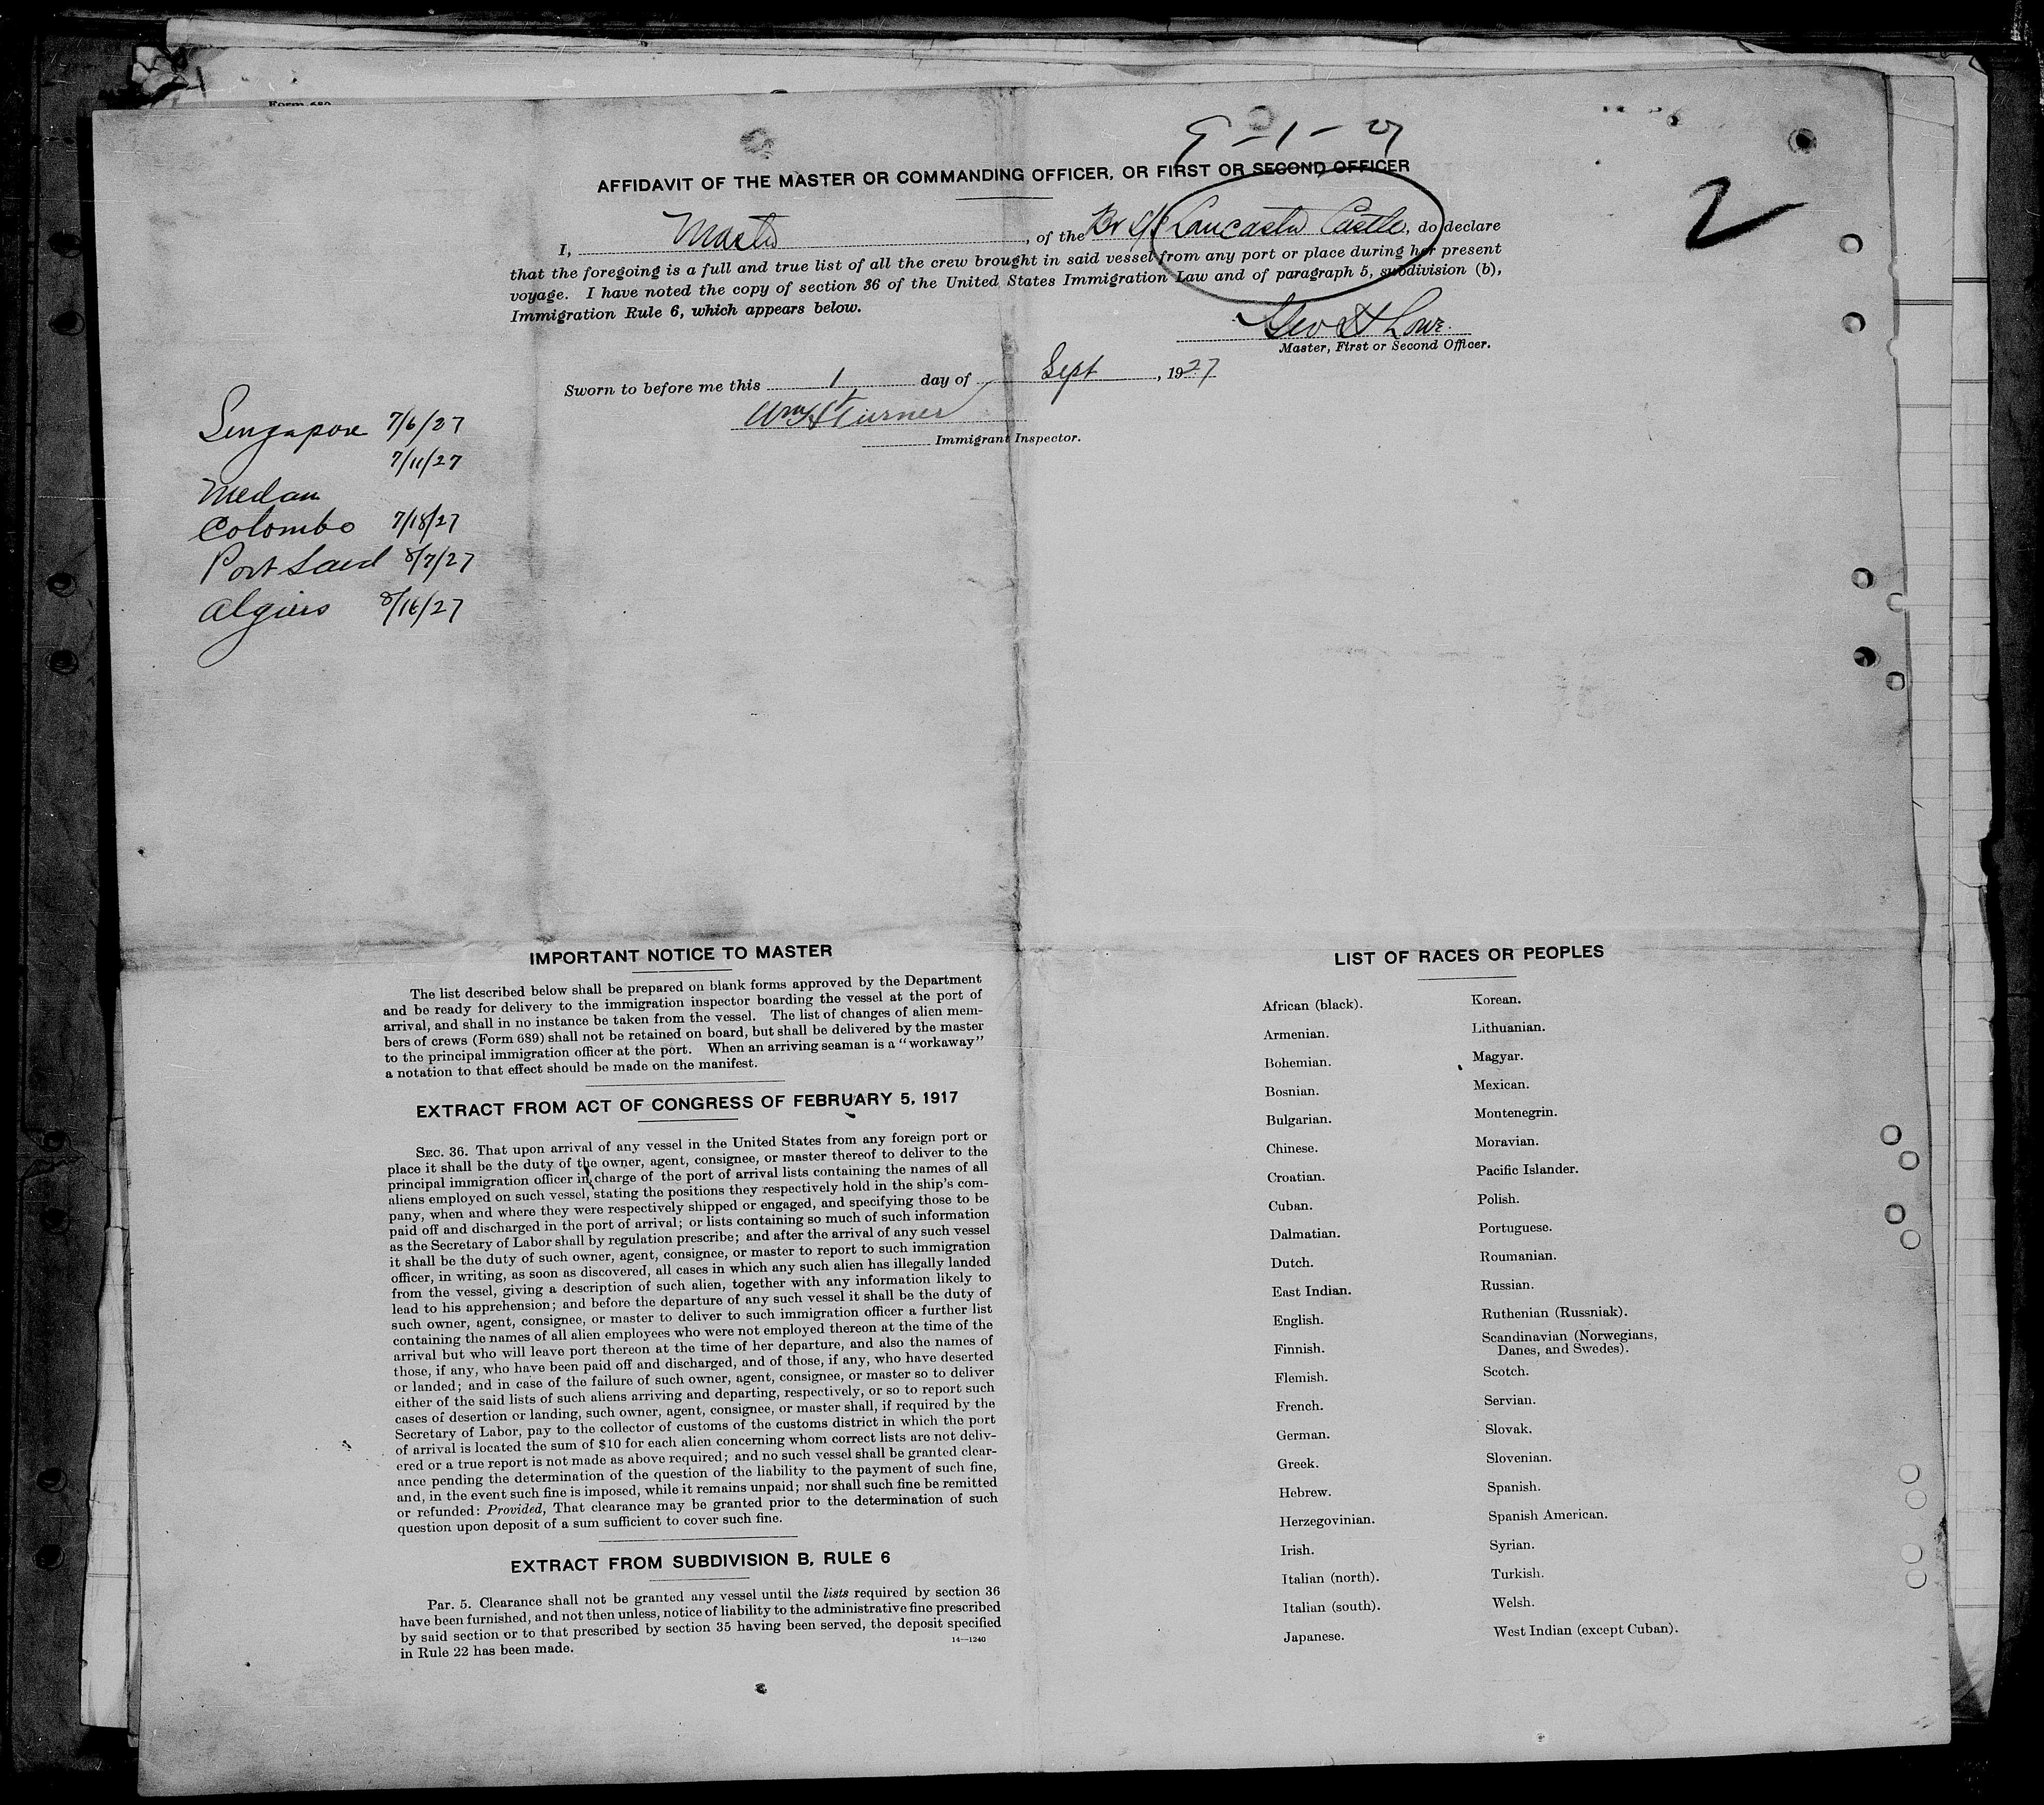 9-1-27
AFFIDAVIT OF THE MASTER OR COMMANDING OFFICER, OR FIRST OR SECOND OFFICER
2
I, Master, of the Br S/S Lancaster Castle, do declare
that the foregoing is a full and true list of all the crew brought in said vessel from any port or place during her present
voyage. I have noted the copy of section 36 of the United States Immigration Law and of paragraph 5, subdivision (b),
Immigration Rule 6, which appears below.
Geo H Lowe
Master, First or Second Officer.
Sworn to before me this 1 day of Sept, 1927
Wm H Turner
Immigrant Inspector.
Singapore 7/6/27
7/11/27
Medan
Colombo 7/18/27
Port Said 8/7/27
Algiers 8/16/27
IMPORTANT NOTICE TO MASTER
The list described below shall be prepared on blank forms approved by the Department
and be ready for delivery to the immigration inspector boarding the vessel at the port of
arrival, and shall in no instance be taken from the vessel. The list of changes of alien mem-
bers of crews (Form 689) shall not be retained on board, but shall be delivered by the master
to the principal immigration officer at the port. When an arriving seaman is a "workaway"
a notation to that effect should be made on the manifest.
EXTRACT FROM ACT OF CONGRESS OF FEBRUARY 5, 1917
SEC. 36. That upon arrival of any vessel in the United States from any foreign port or
place it shall be the duty of the owner, agent, consignee, or master thereof to deliver to the
principal immigration officer in charge of the port of arrival lists containing the names of all
aliens employed on such vessel, stating the positions they respectively hold in the ship's com-
pany, when and where they were respectively shipped or engaged, and specifying those to be
paid off and discharged in the port of arrival; or lists containing so much of such information
as the Secretary of Labor shall by regulation prescribe; and after the arrival of any such vessel
it shall be the duty of such owner, agent, consignee, or master to report to such immigration
officer, in writing, as soon as discovered, all cases in which any such alien has illegally landed
from the vessel, giving a description of such alien, together with any information likely to
lead to his apprehension; and before the departure of any such vessel it shall be the duty of
such owner, agent, consignee, or master to deliver to such immigration officer a further list
containing the names of all alien employees who were not employed thereon at the time of the
arrival but who will leave port thereon at the time of her departure, and also the names of
those, if any, who have been paid off and discharged, and of those, if any, who have deserted
or landed; and in case of the failure of such owner, agent, consignee, or master so to deliver
either of the said lists of such aliens arriving and departing, respectively, or so to report such
cases of desertion or landing, such owner, agent, consignee, or master shall, if required by the
Secretary of Labor, pay to the collector of customs of the customs district in which the port
of arrival is located the sum of $10 for each alien concerning whom correct lists are not deliv-
ered or a true report is not made as above required; and no such vessel shall be granted clear-
ance pending the determination of the question of the liability to the payment of such fine,
and, in the event such fine is imposed, while it remains unpaid; nor shall such fine be remitted
or refunded: Provided, That clearance may be granted prior to the determination of such
question upon deposit of a sum sufficient to cover such fine.
EXTRACT FROM SUBDIVISION B, RULE 6
Par. 5. Clearance shall not be granted any vessel until the lists required by section 36
have been furnished, and not then unless, notice of liability to the administrative fine prescribed
by said section or to that prescribed by section 35 having been served, the deposit specified
in Rule 22 has been made.
14—1240
LIST OF RACES OR PEOPLES
African (black).
Armenian.
Bohemian.
Bosnian.
Bulgarian.
Chinese.
Croatian.
Cuban.
Dalmatian.
Dutch.
East Indian.
English.
Finnish.
Flemish.
French.
German.
Greek.
Hebrew.
Herzegovinian.
Irish.
Italian (north).
Italian (south).
Japanese.
Korean.
Lithuanian.
Magyar.
Mexican.
Montenegrin.
Moravian.
Pacific Islander.
Polish.
Portuguese.
Roumanian.
Russian.
Ruthenian (Russniak).
Scandinavian (Norwegians,
Danes, and Swedes).
Scotch.
Servian.
Slovak.
Slovenian.
Spanish.
Spanish American.
Syrian.
Turkish.
Welsh.
West Indian (except Cuban).